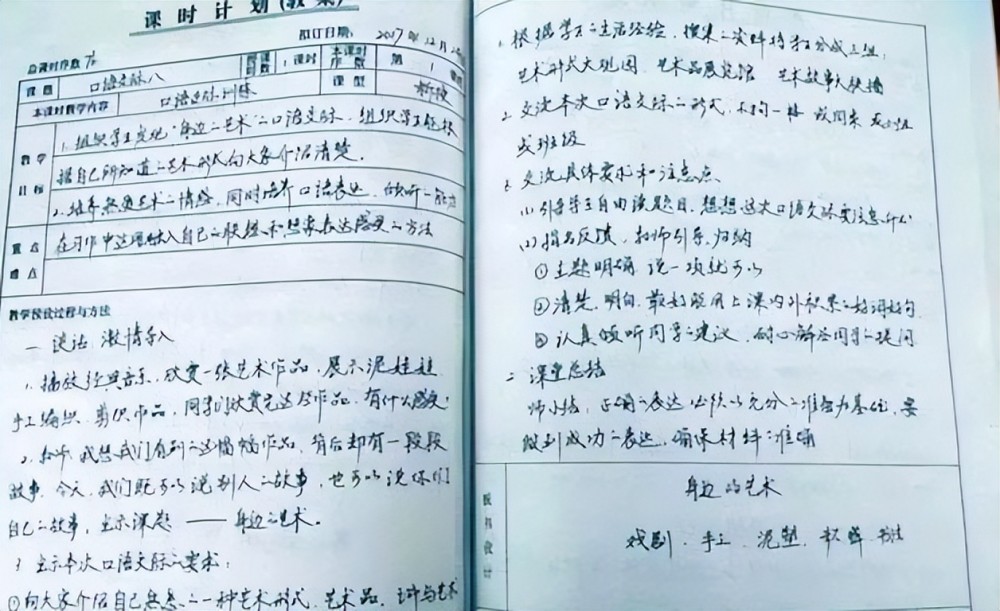 课时计划(教案)
拟订日期: 2017年12月
总课时序数 76
课题 口语交际八 授课时数 1课时 本课时序数 第1课时
本课时教学内容 口语交际训练 课型 新授
教学目标
1. 组织学生发现“身边的艺术”的口语交际,组织学生能根
据自己所知道的艺术形式向大家介绍清楚。
2. 培养热爱艺术的情感,同时培养口语表达、倾听的能力
重点难点
在习作中适当融入自己的联想和想象表达感受的方法
教学预设过程与方法
一、谈话,激情导入
1. 播放经典音乐,欣赏一张艺术作品,展示泥娃娃、
手工编织、剪纸作品,同学们欣赏完这些作品,有什么感受?
2. 我想我们看到的这幅幅作品,背后却有一段段
故事。今天,我们既可以说别人的故事,也可以说你们
自己的故事,出示课题——身边的艺术。
3. 出示本次口语交际的要求:
①向大家介绍自己熟悉的一种艺术形式、艺术品、
1. 根据学生的生活经验,搜集的资料将学生分成三组:
艺术形式大观园 艺术品展览馆 艺术故事大联播
2. 交流本次口语交际的形式,不拘一格 或同桌 或小组
或班级
3. 交流具体要求和注意点
(1) 引导学生自由读题目,想想这次口语交际要注意什么
(2) 指名反馈,教师引导、归纳
①主题明确 说一项就可以
②清楚、明白,最好能用上课内外积累的好词好句
③认真倾听同学的建议,耐心解答同学的提问
二 课堂总结
师小结:正确的表达必须以充分的准备为基础,要
做到成功的表达,确保材料的准确
板书设计
身边的艺术
戏剧、手工、泥塑、 书法